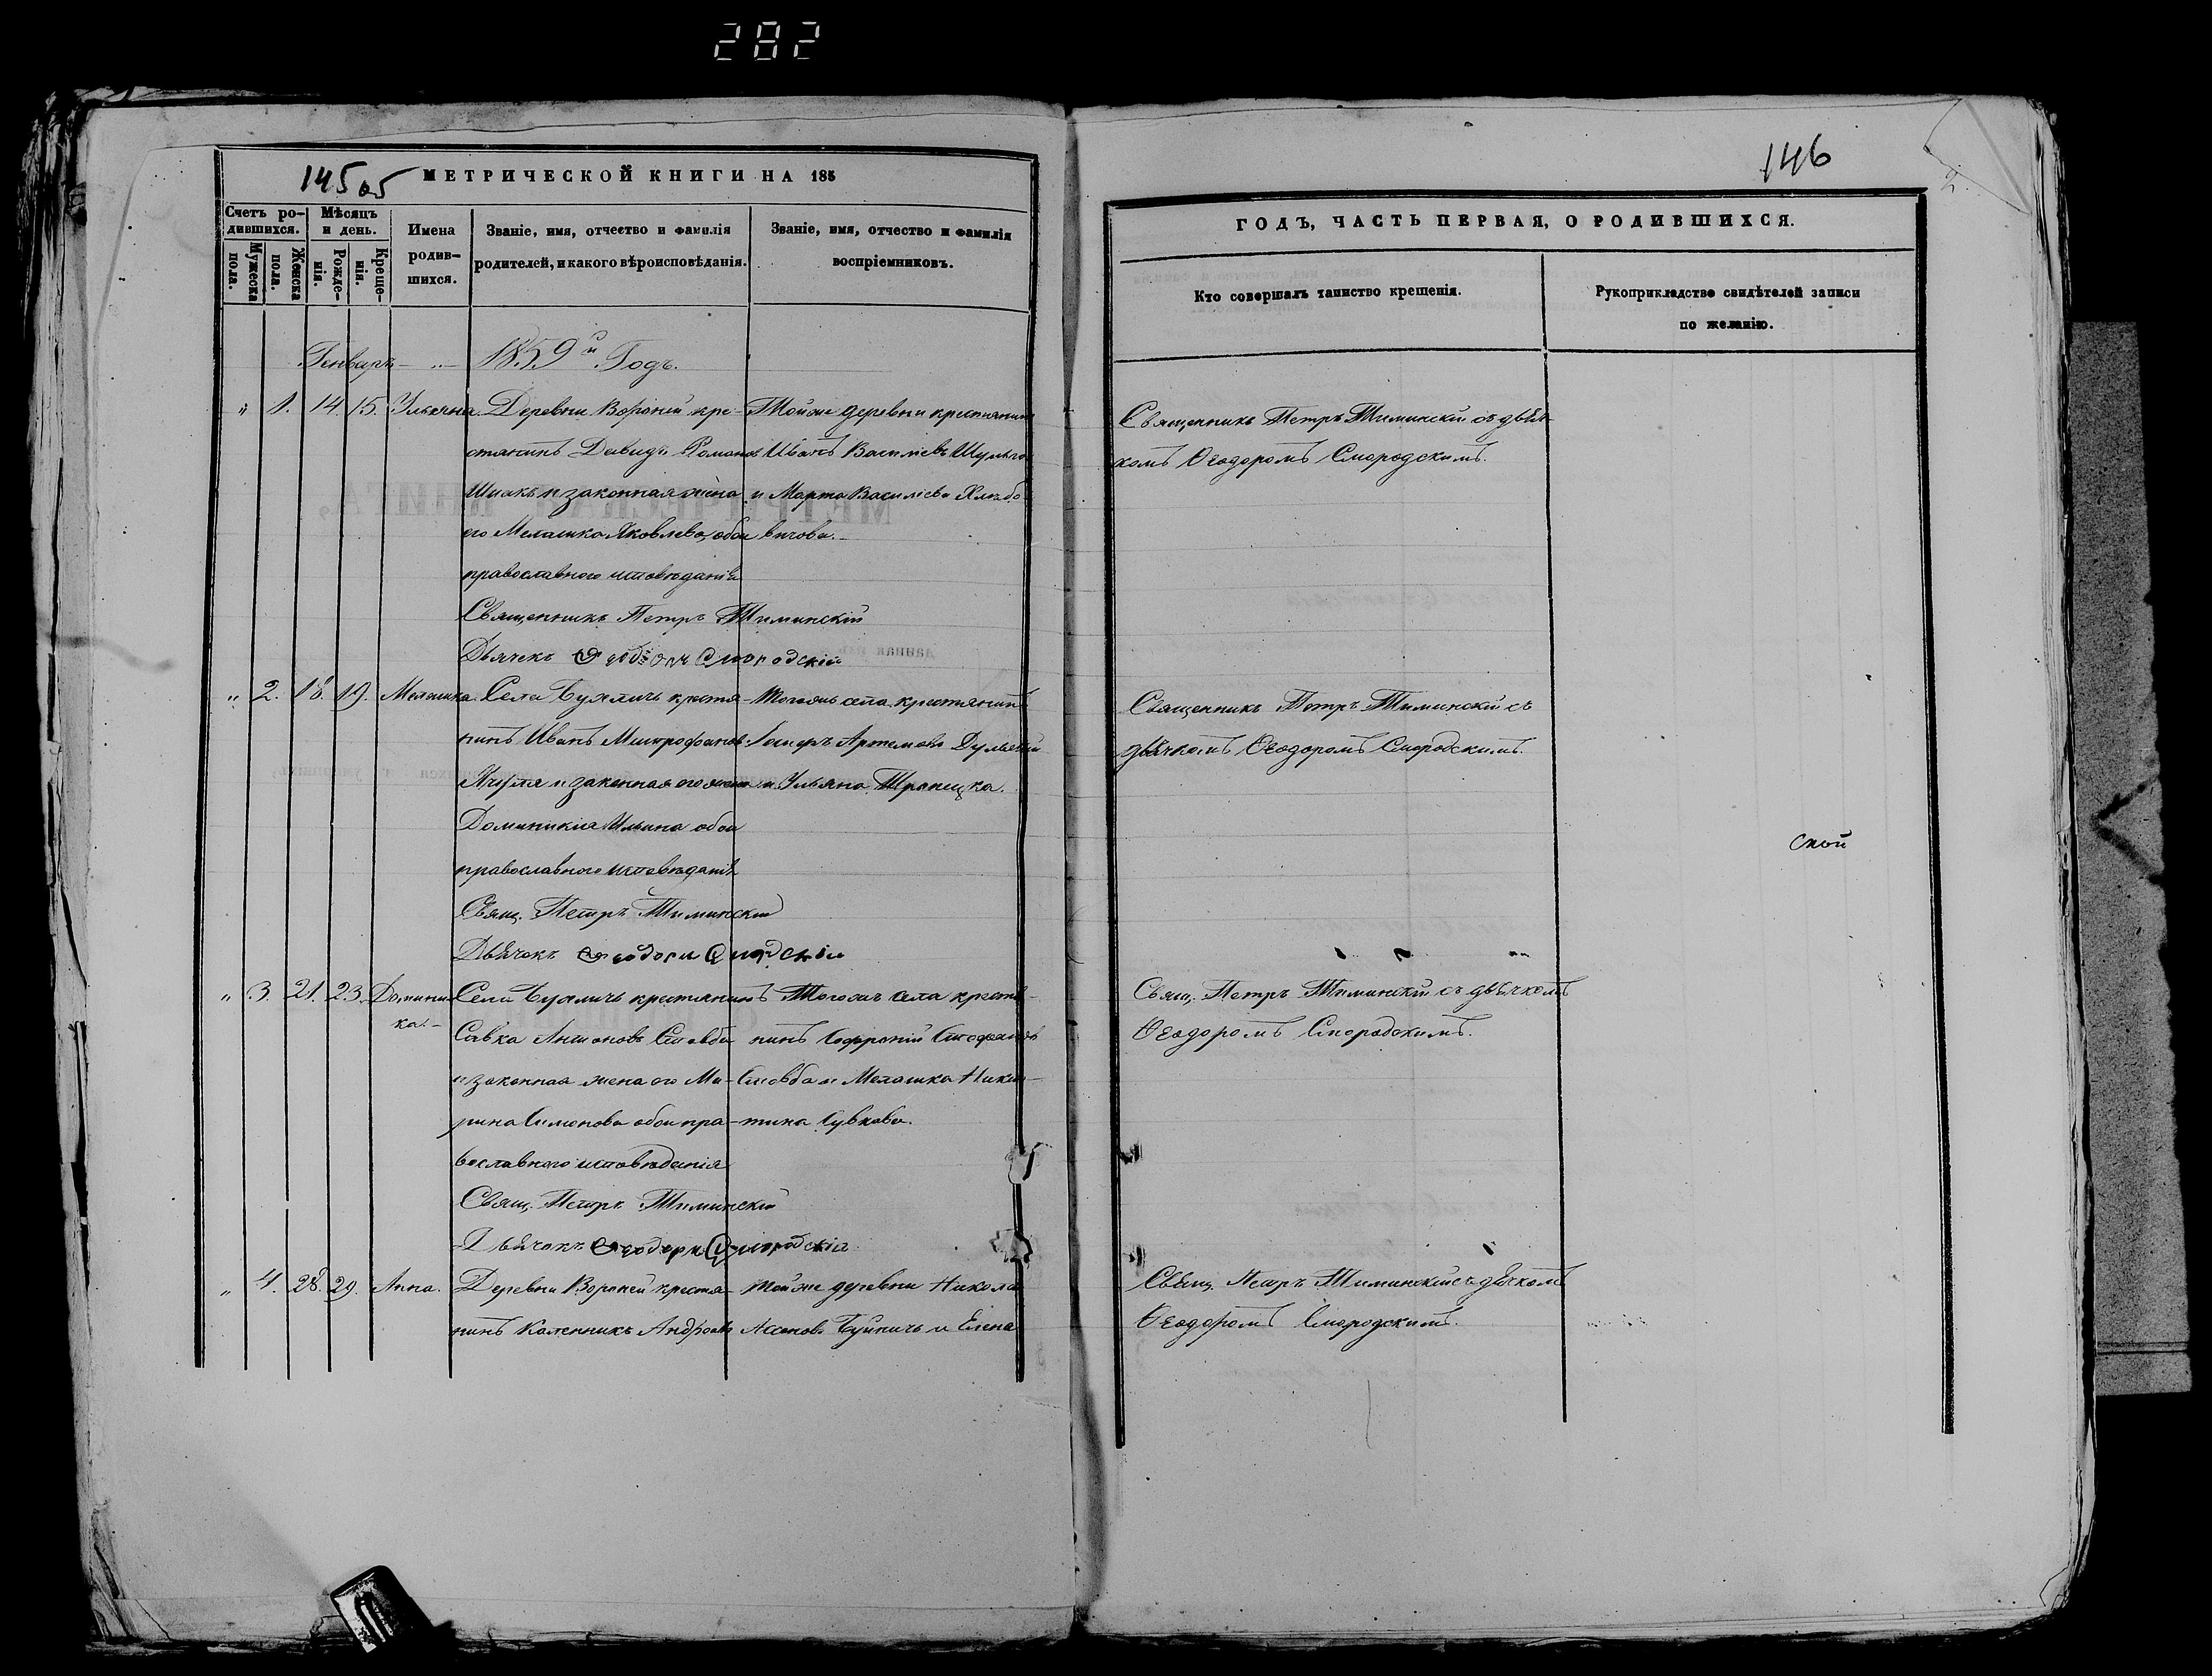 282
145об
МЕТРИЧЕСКОЙ КНИГИ НА 185
Счетъ родившихся.
Мужеска пола.
Женска пола.
Мѣсяцъ и день.
Рожденія.
Крещенія.
Имена родившихся.
Званіе, имя, отчество и фамилія
родителей, и какого вѣроисповѣданія.
Званіе, имя, отчество и фамилія
воспріемниковъ.
Генварь 1859й Годъ.
" 1. 14. 15. Ульяна.
Деревни Вороней кре-
стянинъ Давидъ Романовъ
и законная жена
его Мелашка Яковлева, обои
православного исповѣданія
Священникъ Петръ Тиминскій
Дьячекъ Ѳеодоръ Смородскій
Тойже деревни крестянинъ
Иванъ Васильевъ Шульга
и Марта Васильева Хлѣбо
вичова.
" 2. 18. 19. Мелашка.
Села Бухличь крестя-
нинъ Иванъ Митрофановъ
и законная его жена
Доминикія Ильина обои
православного исповѣданія
Свящ. Петръ Тиминскій
Дьячокъ Ѳеодоръ Смородскій
Тогожъ села крестянинъ
Артемовъ
и Ульяна
" 3. 21. 23. Домини
ка.
Села Бухличь крестянинъ
Савка Антоновъ Стовба
и законная жена его Ма-
рина Симонова обои пра-
вославного исповѣданія
Свящ. Петръ Тиминскій
Дьячокъ Ѳеодоръ Смородскій
Тогожъ села крестя-
нинъ Софроній Стефановъ
Стовба и Мелашка Ники-
тина
" 4. 28. 29. Анна.
Деревни Вороней крестя-
нинъ Каленникъ Андреевъ
Тойже деревни Никола
Буйничь и Елена
146
ГОДЪ, ЧАСТЬ ПЕРВАЯ, О РОДИВШИХСЯ.
Кто совершалъ таинство крещенія.
Рукоприкладство свидѣтелей записи
по желанію.
Священникъ Петръ Тиминскій съ дьяч-
комъ Ѳеодоромъ Смородскимъ.
Священникъ Петръ Тиминскій съ
дьячкомъ Ѳеодоромъ Смородскимъ.
ской
Свящ. Петръ Тиминскій съ дьячкомъ
Ѳеодоромъ Смородскимъ.
Свящ. Петръ Тиминскій съ дьячкомъ
Ѳеодоромъ Смородскимъ.